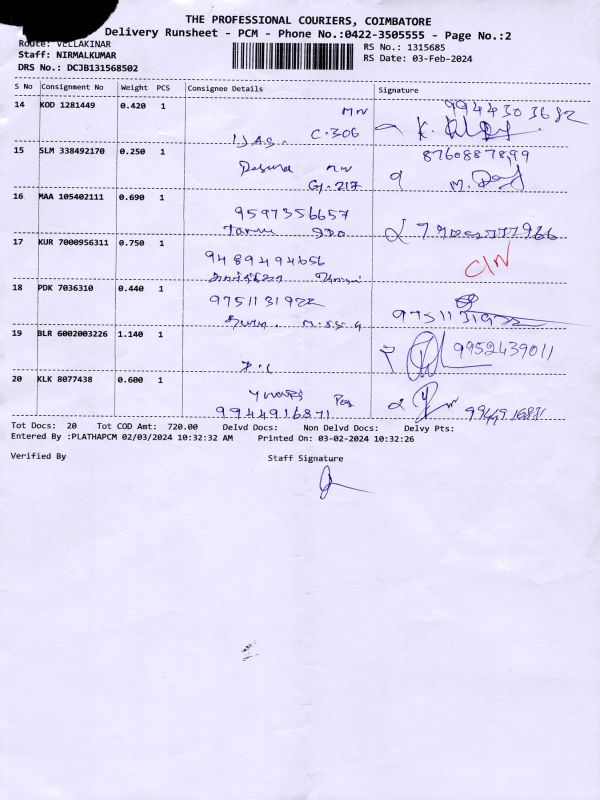 THE PROFESSIONAL COURIERS, COIMBATORE
Delivery Runsheet - PCM - Phone No.:0422-3505555 - Page No.:2
Route: VELLAKINAR
RS No.: 1315685
Staff: NIRMALKUMAR
RS Date: 03-Feb-2024
DRS No.: DCJB131568502
S No Consignment No Weight PCS Consignee Details Signature
14 KOD 1281449 0.420 1
MN 9944303682
IJAS. C-306
15 SLM 338492170 0.250 1
8760887899
MN
G-217
16 MAA 105402111 0.690 1
9597356657
17 KUR 7000956311 0.750 1
9489494656
C/N
18 PDK 7036310 0.440 1
9751131922
9751131922
19 BLR 6002003226 1.140 1
9952439011
20 KLK 8077438 0.600 1
9944916831 9944916831
Tot Docs: 20 Tot COD Amt: 720.00 Delvd Docs: Non Delvd Docs: Delvy Pts:
Entered By :PLATHAPCM 02/03/2024 10:32:32 AM Printed On: 03-02-2024 10:32:26
Verified By Staff Signature